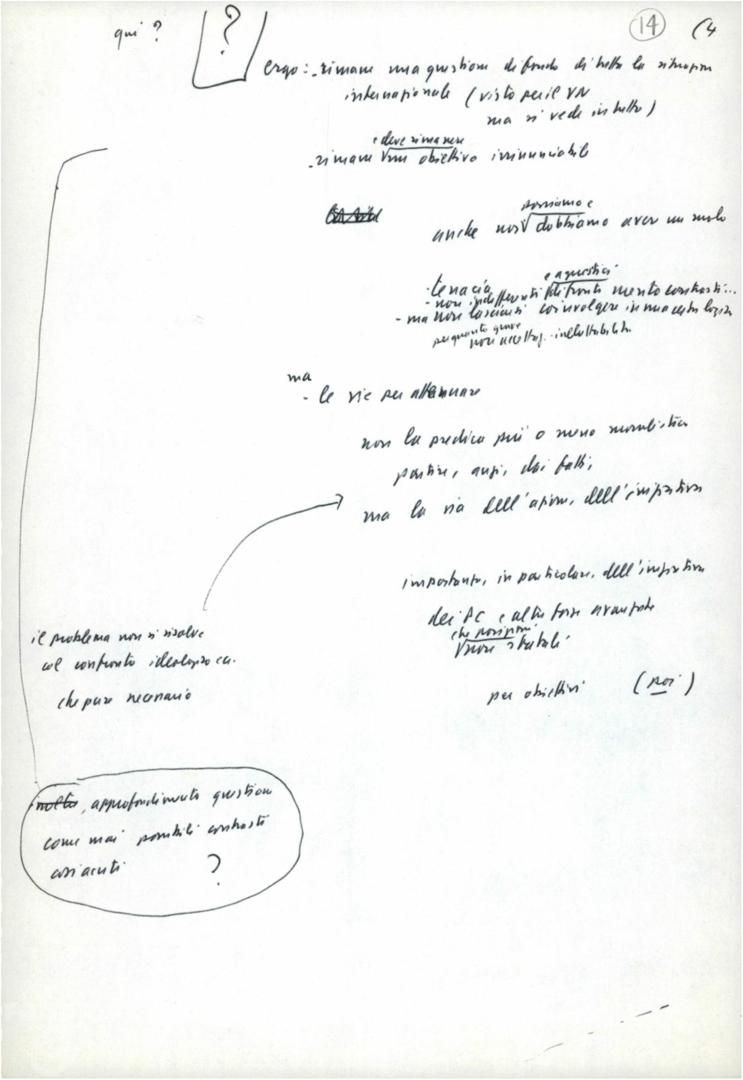 qui ?
?
14
(4
ergo: - rimane una questione di fondo di tutta la situazione
internazionale (visto per il VN
ma si vede in tutto)
e deve rimanere
- rimane un obiettivo irrinunciabile
possiamo e
anche noi dobbiamo aver un ruolo
- tenacia
e agnostici
- non indifferenti di fronte contrasti...
- ma non lasciarsi coinvolgere in una certa logica
per quanto grave
non accettaz. ineluttabilità
ma
- le vie per attenuare
non la predica più o meno moralistica
partire, anzi, dai fatti,
ma la via dell'azione, dell'iniziativa
importante, in particolare, dell'iniziativa
dei PC e altre forze avanzate
che posizioni
non statali
per obiettivi (poi)
il problema non si risolve
col confronto ideologico ca.
che pure necessario
inoltre, approfondimento questione
come mai possibili contrasti
così acuti ?